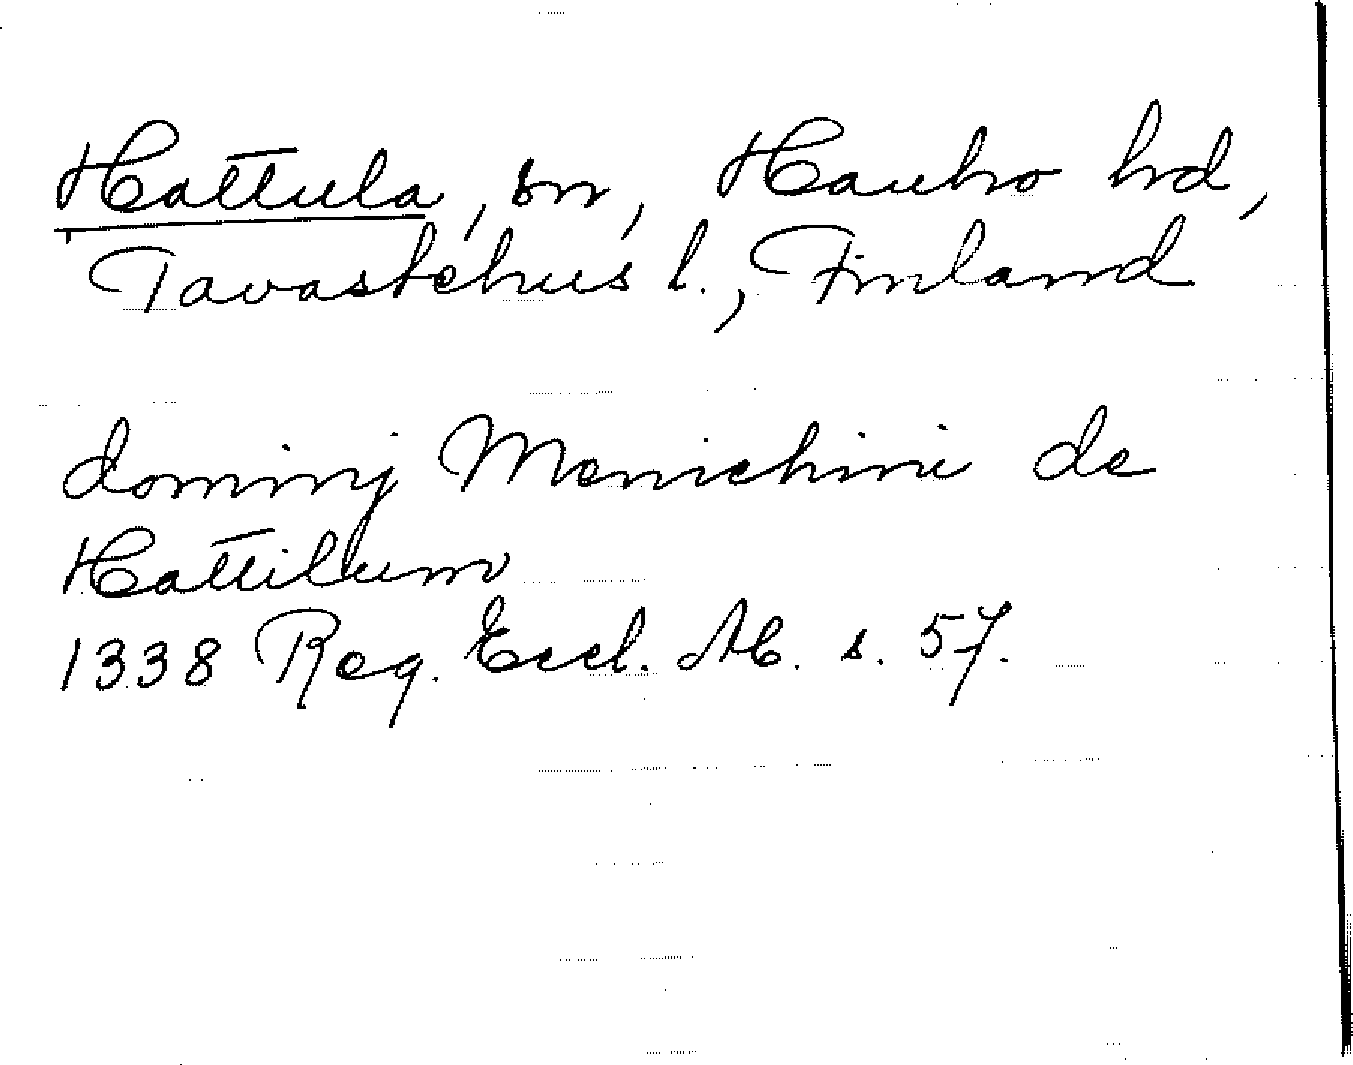 Hattula, sn, Hauho hd,
Tavastehus l., Finland
dominj Menichini de
Hattilum
1338 Reg. Eccl. Ab. s. 57.